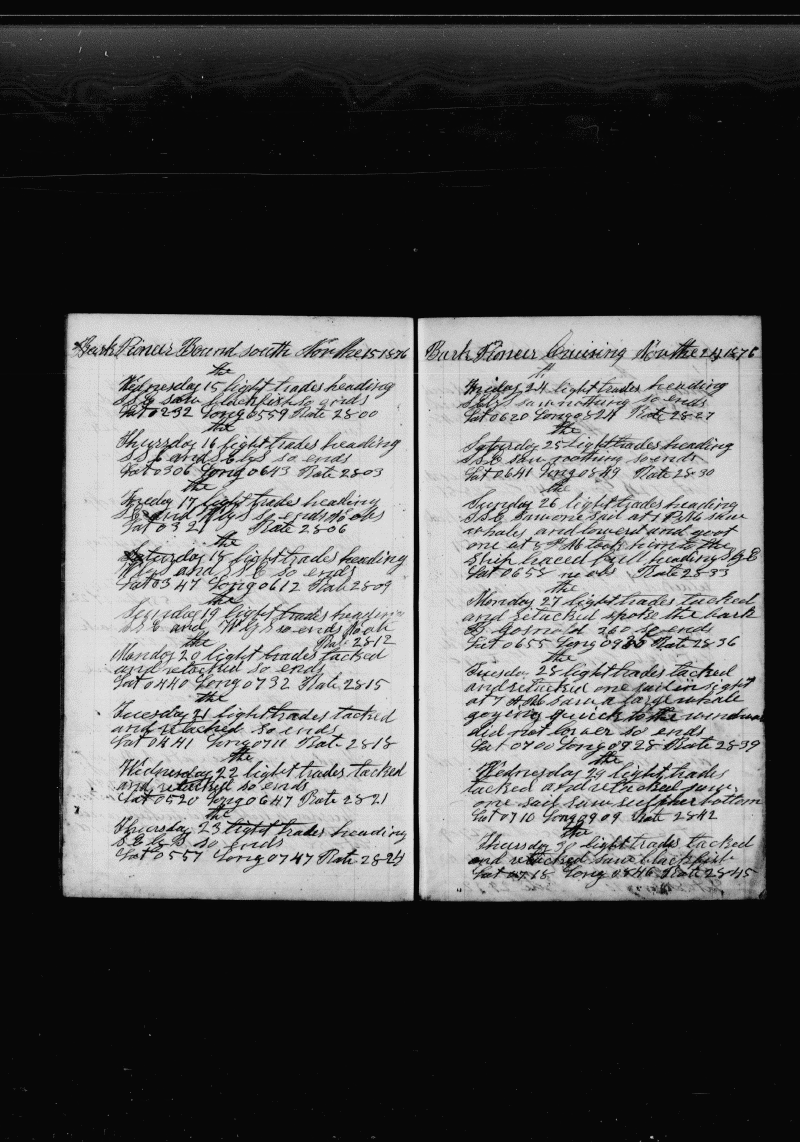 Bark Pioneer Bound south Nov the 15 1876
the
Wednesday 15 light trades heading
S S E saw blackfish so ends
Lat 0232 Long 0559 Rate 28-00
the
Thursday 16 light trades heading
S S E and so ends
Lat 0306 Long 0643 Rate 28-03
the
Friday 17 light trades heading
S E and so ends No obs
Lat 032 Rate 28-06
the
Saturday 18 light trades heading
and S E so ends
Lat 0347 Long 0612 Rate 28-09
the
Sunday 19 light trades heading
and so ends No ob
the Rat 28-12
Monday 20 light trades tacked
and retacked so ends
Lat 0440 Long 0732 Rate 28-15
the
Tuesday 21 light trades tacked
and retacked so ends
Lat 0441 Long 0711 Rate 28-18
the
Wednesday 22 light trades tacked
and retacked so ends
Lat 0520 Long 0647 Rate 28-21
the
Thursday 23 light trades heading
so ends
Lat 0557 Long 0747 Rate 28-24
Bark Pioneer Cruising Nov the 24 1876
Friday 24 light trades heading
saw nothing so ends
Lat 0620 Long 0824 Rate 28-27
the
Saturday 25 light trades heading
S S E saw nothing so ends
Lat 0641 Long 0849 Rate 28-30
the
Sunday 26 light trades heading
S S E saw one sail at 1 PM saw
whales and lowered and got
one at 5 PM took him to the
ship heading
Lat 0658 Rate 28-33
the
Monday 27 light trades tacked
and retacked spoke the bark
Gosnold 260 so ends
Lat 0655 Long 0935 Rate 28-36
the
Tuesday 28 light trades tacked
and retacked one sail in sight
at 7 AM saw a large whale
going quick to the windward
did not lower so ends
Lat 0700 Long 0928 Rate 28-39
the
Wednesday 29 light trades
tacked and retacked saw
one sail saw sulpher bottom
Lat 0710 Long 0909 Rate 28-42
the
Thursday 30 light trades tacked
and retacked saw blackfish
Lat 0718 Long 0846 Rate 28-45